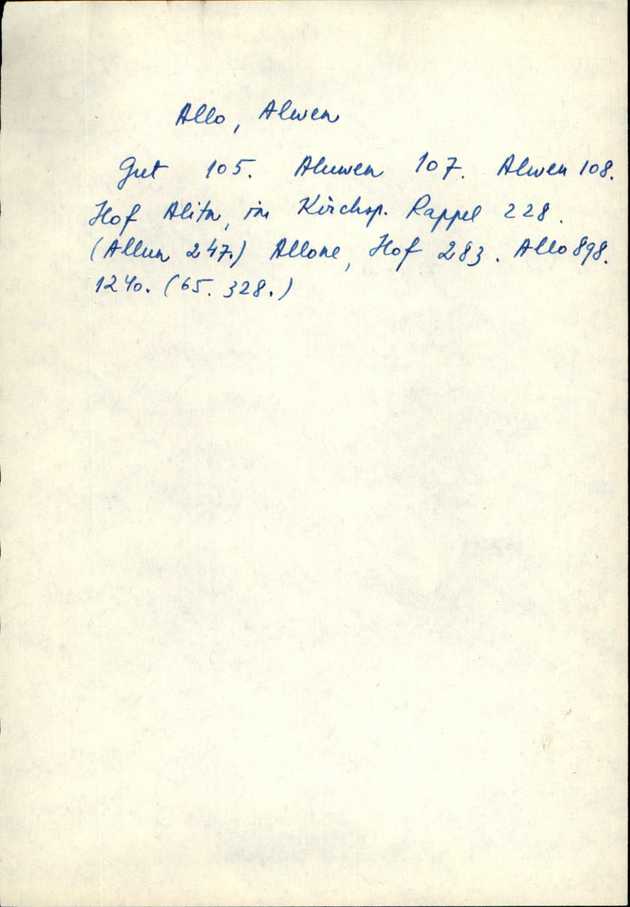 Allo, Alwen
Gut 105. Aluwen 107. Alwen 108.
Hof Alitn, im Kirchsp. Rappel 228.
(Allun 247.) Allone, Hof 283. Allo 898.
1240. (65. 328.)